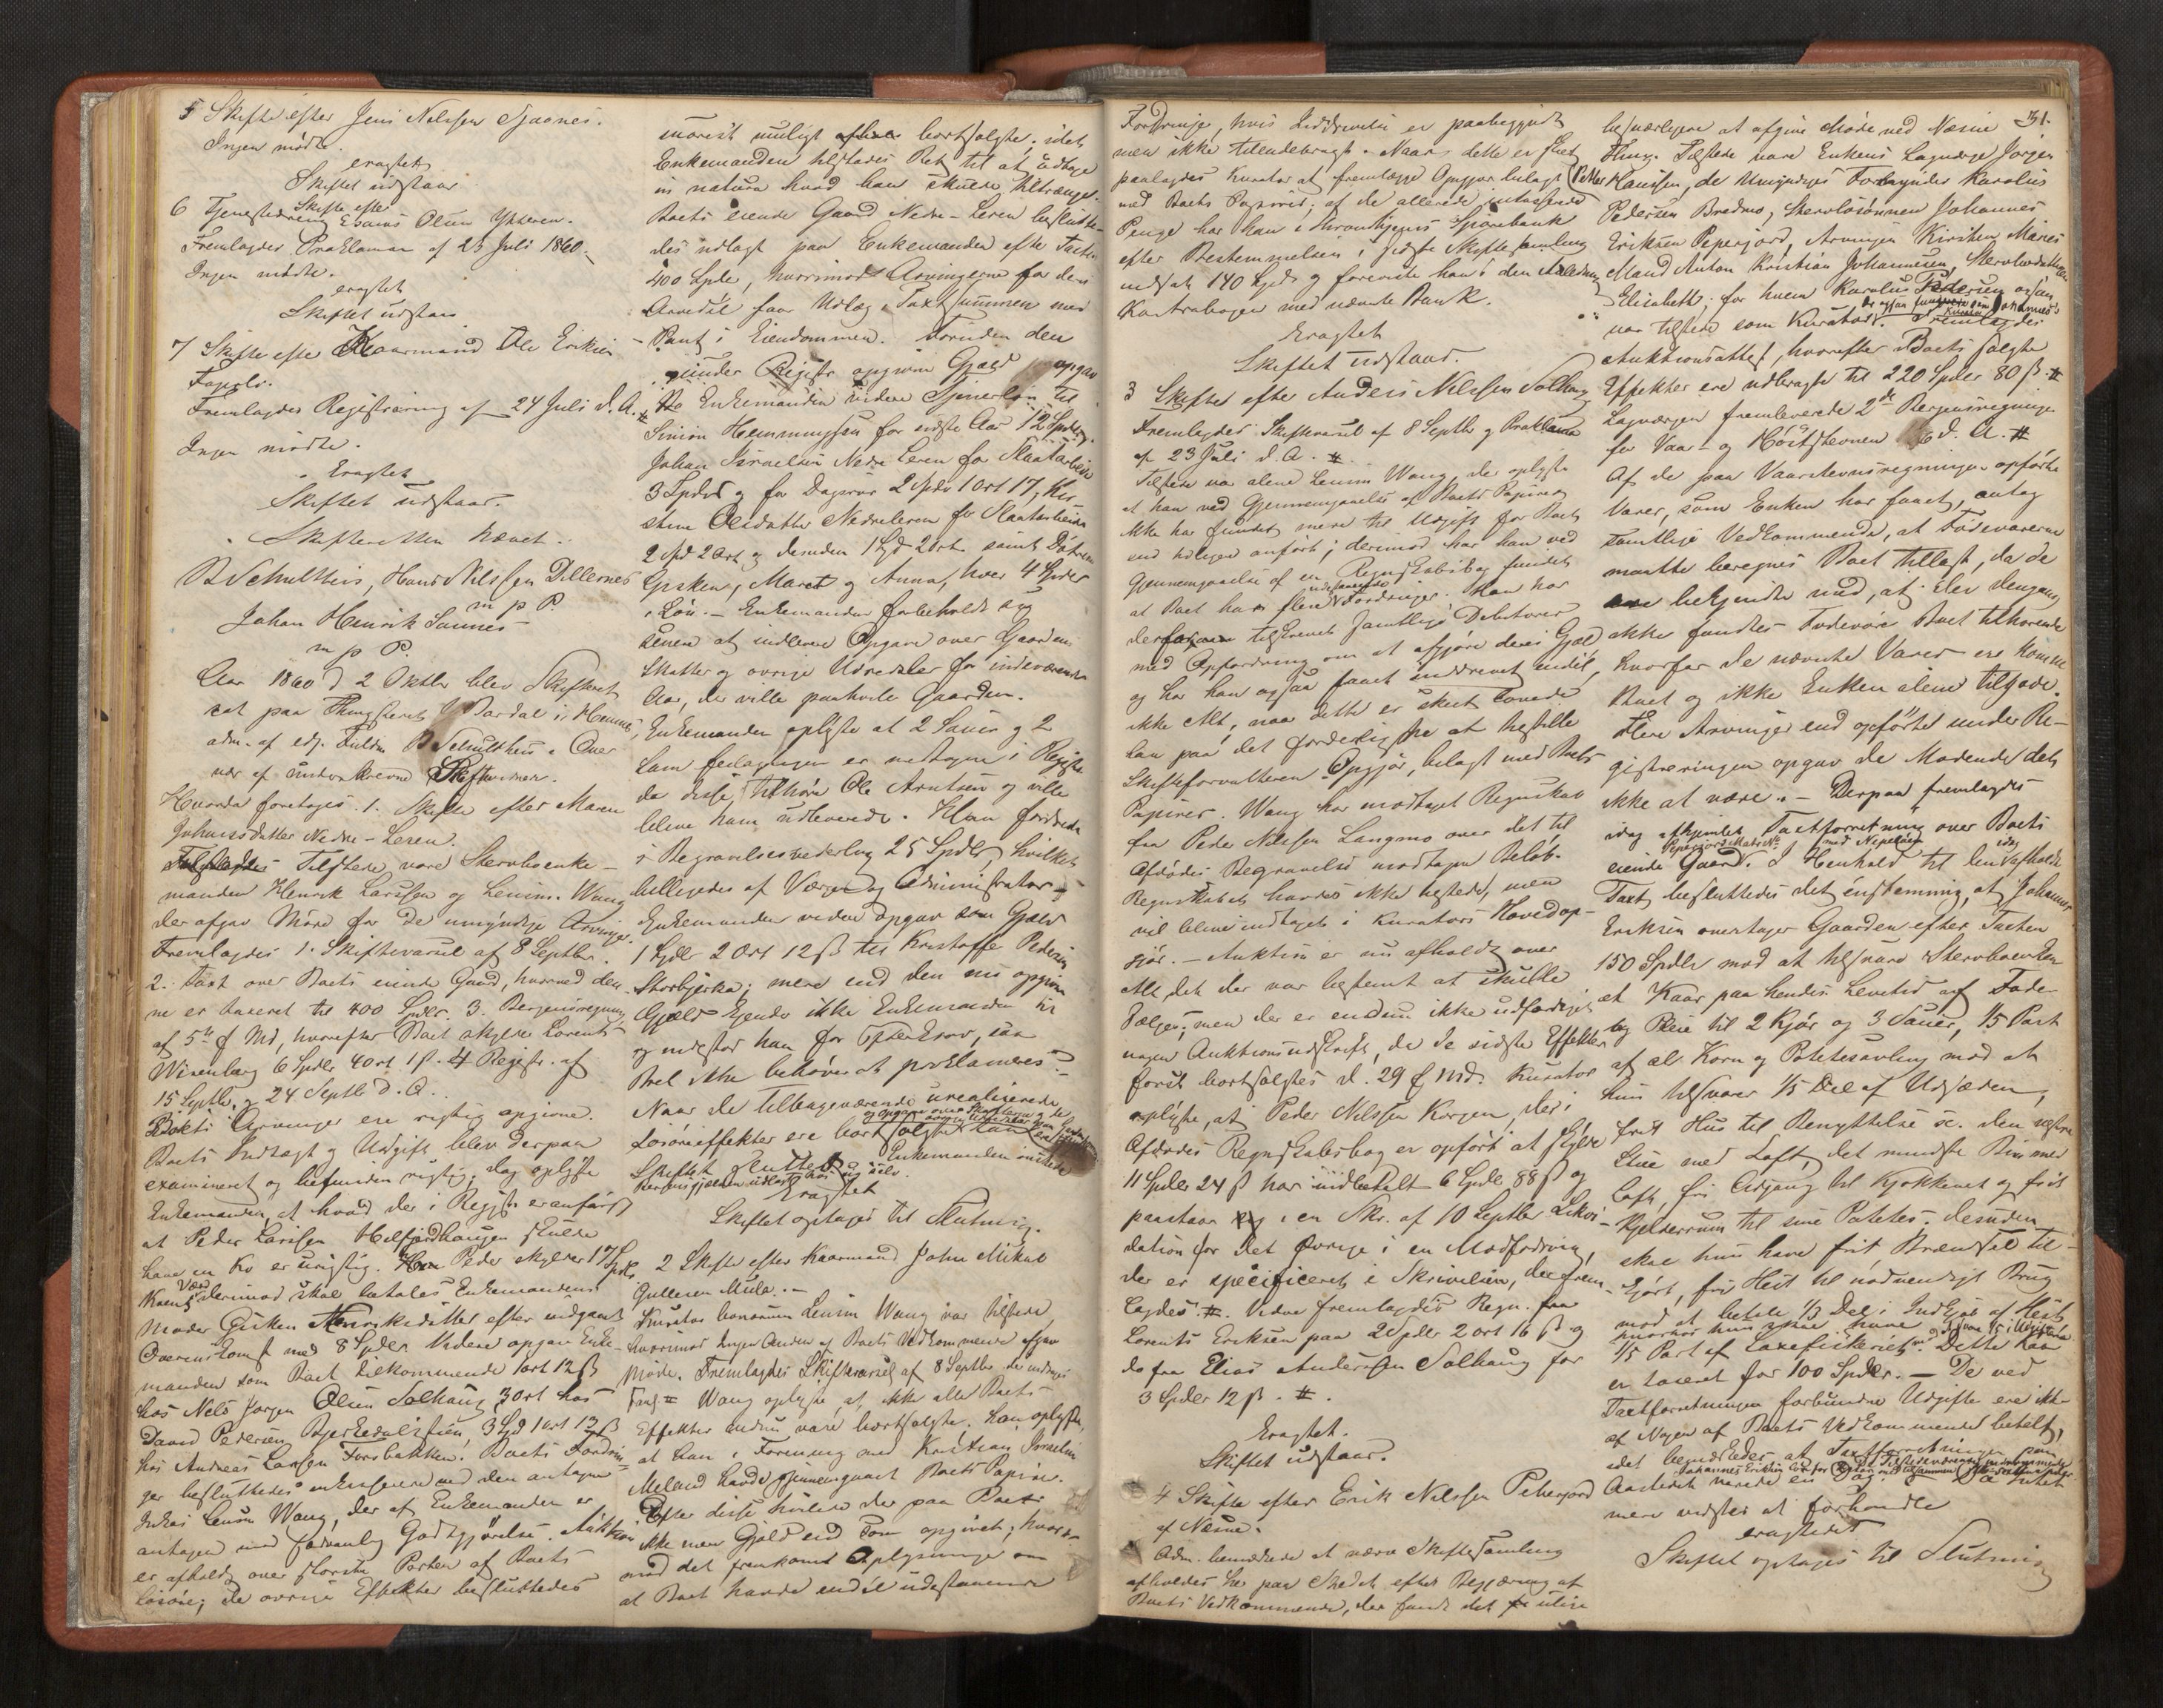 5 Skifte efter Jens Nilssen Sjaanes.
Ingen mødte.
eragtet
Skiftet udstaar
6 Skifte efter
Tjenestedreng Esaias Olsen Ytteren.
Fremlagdes Proklama af 23 Juli 1860.
Ingen mødte.
eragtet
Skiftet udstaar
7 Skifte efter Kaarmand Ole Eriksen
Fremlagdes Registrering af 24 Juli d. A. #
Ingen mødte.
Eragtet
Skiftet udstaar.
Skifteretten hævet.
B Schultheis, Hans Nilssen Dillernes
m p P.
Johan Henrik Sannes
m p P.
Aar 1860 d 2 Oktbr blev Skifteret
sat paa Thingstedet Bardal i Hemnes,
adm. af edf. Fuldm B Schultheis. Over
vær af underskrevne Skiftevidner.
Hvorda foretoges. 1. Skifte efter Maren
Johansdatter Nedre-Leren.
Tilstede vare Stervboenke-
manden Henrik Larssen og Lensm. Wang
der afgav Møde for de umyndige Arvinger.
Fremlagdes 1. Skiftevarsel af 8 Septbr.
2. Taxt over Boets eiende Gaard, hvorved den-
ne er taxeret til 400 Spdlr. 3. Bergensregning
af 5te f Md, hvorefter Boet skylder Lorents
Wisenberg 6 Spdlr 4 ort 1 ß. 4 Registr. af
15 Septbr. 24 Septb d. A.
Arvinger ere rigtig opgivne.
Boets Indtægt og Udgift blev derpaa
examineret og befunden rigtig, dog oplyste
Enkemanden, at hvad der i Registr er anført
at Peder Larssen Helfjordhaugen skulde
have en Ko er urigtig. Peder skylder 17 Spdlr,
derimod skal betales Enkemandens
Moder Gisken Henriksdatter efter indgaaet
Overenskomst med 8 Spdlr. Videre opgav Enke-
manden som Boet tilkommende 1 ort 12 ß
hos Nels Jørgen Olsen Solhaug, 3 ort hos
David Pedersen Bjerkedalstien, 3 Spd 1 ort 12 ß
hos Andreas Larssen Forsbakken. Boets Fordrin-
ger besluttedes inkasserede ved den antagne
Inkas. Lensm Wang, der af Enkemanden er
antagen mod sædvanlig Godtgjørelse. Auktion
er afholdt over største Parten af Boets
Løsøre; de øvrige Effekter besluttedes
snarest muligt bortsolgte, idet
Enkemanden tilstodes Ret til at udtage
in natura hvad han skulde tiltrænge.
Boets eiende Gaard Nedre-Leren beslutte-
des udlagt paa Enkemanden efter Taxten
400 Spdlr, hvorimod Arvingerne for deres
Arvedel faar Udlæg i Taxtsummen med
Pant i Eiendommen. Foruden den
under Registr opgivne Gjæld opgav
Enkemanden videre Tjenerløn til
Simon Hemmingsen for sidste Aar 12 Spdlr,
Johan Israelsen Nedre Leren for Slaatarbeide
3 Spdlr og for Dagsrur 2 Spdlr 1 ort 17, Kir-
stine Olsdatter Nedreleren for Slaatarbeide
2 Spd 2 ort og desuden 1 Spd 2 ort samt Døtrene
Gjsken, Maret og Anna, hver 4 Spdlr
i Løn. - Enkemanden forbeholdt sig
senere at indlevere Opgave over Gaardens
Skatter og øvrige Udredsler for indeværende
Aar, der ville paahvile Gaarden.
Enkemanden oplyste at 2 Sauer og 2
Lam feilagtigen er medtagne i Registr
da disse tilhøre Ole Arntsen og ville
blive ham udleverede. Han fordrede
i Begravelsesvederlag 25 Spdlr, hvilket
billigedes af Værgen og Administrator.
Enkemanden videre opgav som Gjæld
1 Spdlr 2 ort 12 ß til Kristoffer Pedersen
Storbjerka; mere end den nu opgivne
Gjæld kjendte ikke Enkemanden til
og indestod han for Efterkrav, saa
Boet ikke behøver at proklameres.
Naar de tilbageværende urealiserede
Løsøreeffekter ere bortsolgte kan
Skiftet sluttes. Enkemanden ønskede
Eragtet
Skiftet optages til Slutning.
2 Skifte efter Kaarmand John Mikal
Gullesen Mula. -
Kurator bonorum Lensm Wang var tilstede
hvorimod Ingen Anden af Boets Vedkommende afgav
Møde. Fremlagdes Skiftevarsel af 8 Septbr
Wang oplyste, at ikke alle Boets
Effekter endnu vare bortsolgte. Han oplyste,
at han i Forening med Kristian Israelsen
Meland havde gjennemgaaet Boets Papirer.
Efter disse hvilede der paa Boet
ikke mere Gjæld end som opgivet; hvori-
mod det fremkom Oplysninger om
at Boet havde endel udestaaende
31.
Fordringe, hvis Inddrivelse er paabegyndt
men ikke tilendebragt. Naar dette er skeet
paalagdes Kurator at fremlægge Opgjør belagt
med Boets Papirer; af de allerede indkasserede
Penge har han i Throndhjems Sparebank
efter Bestemmelsen i sidste Skiftesamling
indsat 140 Spd og foreviste han i den Anledning
Kontrabogen med nævnte Bank.
Eragtet
Skiftet udstaar.
3 Skifte efter Anders Nilssen Solhaug
Fremlagdes Skiftevarsel af 8 Septbr og Proklama
af 23 Juli d. A. #
Tilstede var alene Lensm Wang, der oplyste
at han ved Gjennemgaaelse af Boets Papirer
ikke har fundet mere til Udgift for Boet
end tidligere anført; derimod har han ved
Gjennemgaaelse af en Regnskabsbog fundet
at Boet har flere udestaaende Fordringer. Han har
tilskrevet samtlige Debitorer
med Opfordring om at afgjøre deres Gjæld
og har han ogsaa faaet inddrevet endel,
ikke Alt, naar dette er skeet lovede
han paa det forderligste at tilstille
Skifteforvalteren Opgjør, belagt med Boets
Papirer. Wang har modtaget Regnskab
fra Peder Nilssen Langmo over det til
Afdødes Begravelse modtagne Beløb.
Regnskabet havdes ikke tilstede, men
vil blive indtaget i Kurators Hovedop-
gjør. - Auktion er nu afholdt over
Alt det der var bestemt at skulle
sælges; men der er endnu ikke udfærdiget
nogen Auktionsudskrift, da de sidste Effekter
først bortsolgtes d. 29 f. Md. Kurator
oplyste, at Peder Nilssen Korgen, der i
Afdødes Regnskabsbog er opført at skylde
11 Spdlr 24 ß har indbetalt 6 Spdlr 88 ß og
paastaar i en Skr. af 10 Septbr Likvi-
dation for det Øvrige i en Modfordring,
der er specificeret i Skrivelsen, der frem-
lagdes #. Videre fremlagdes Regn. fra
Lorents Eriksen paa 2 Spdlr 2 ort 16 ß og
do fra Elias Anderssen Solhaug for
3 Spdlr 12 ß. #.
Eragtet.
Skiftet udstaar.
4 Skifte efter Erik Nilssen Peterjord
af Næsne.
Adm. bemærkede at nærv Skiftesamling
afholdes her paa Stedet efter Begjæring af
Boets Vedkommende, der fandt det
besværligere at afgive Møde ved Næsne
Thing. Tilstede vare Enkens Laugværge Jørgen
Hanssen, de Umyndiges Formynder Karolus
Pedersen Bredmo, Stervbosønnen Johannes
Eriksen Peterjord, Arvingen Kirsten Maries
Mand Anton Kristian Johannesen, Stervbodatteren
Elisabeth, for hvem Karolus Pedersen ogsaa
var tilstede som Kurator. Fremlagdes
Auktionsattest, hvorefter Boets solgte
Effekter ere udbragte til 220 Spdlr 80 ß. #
Laugværgen fremleverede 2de Bergensregninger
for Vaar- og Høststevnen d. A. #
Af de paa Vaarstevnsregningen opførte
Varer, som Enken har faaet, antog
samtlige Vedkommende, at Fødevarerne
maatte beregnes Boet tillagt, da de
vare bekjendte med, at der dengang
ikke fandtes Fødevare Boet tilhørende
hvorfor de nævnte Varer ere komne
Boet og ikke Enken alene tilgode.
Flere Arvinger end opførte under Re-
gistreringen opgav de Mødende det
ikke at være. - Derpaa fremlagdes
idag afhjemlet Taxtforretning over Boets
eiende Gaard. I Henhold til den afholdte
Taxt besluttedes det enstemmig, at Johannes
Eriksen overtager Gaarden efter Taxten
150 Spdlr mod at tilsvare Stervboenken
et Kaar paa hendes Levetid af Føde-
og Pleie til 2 Kjør og 3 Sauer, 1/5 Part
af al Korn og Potetesavling mod at
hun tilsvarer 1/5 Del af Udsæden,
frit Hus til Benyttelse sc. den vestre
Stue med Loft, det mindste Bur med
Loft, fri Adgang til Kjøkkenet og frit
Kjelderrum til sine Potetes. Desuden
skal hun have frit Brændsel til-
kjørt, fri Hest til nødvendigt Brug
mod at betale 1/3 Del i Indkjøb af Hest
1/5 Part af Laxefiskeriet. Dette Kaar
er taxeret for 100 Spdlr. - De ved
Taxtforretningen forbundne Udgifte ere ikke
af Nogen af Boets Vedkommende betalt,
mere vidstes at forhandle
eragtedes
Skiftet optages til Slutning